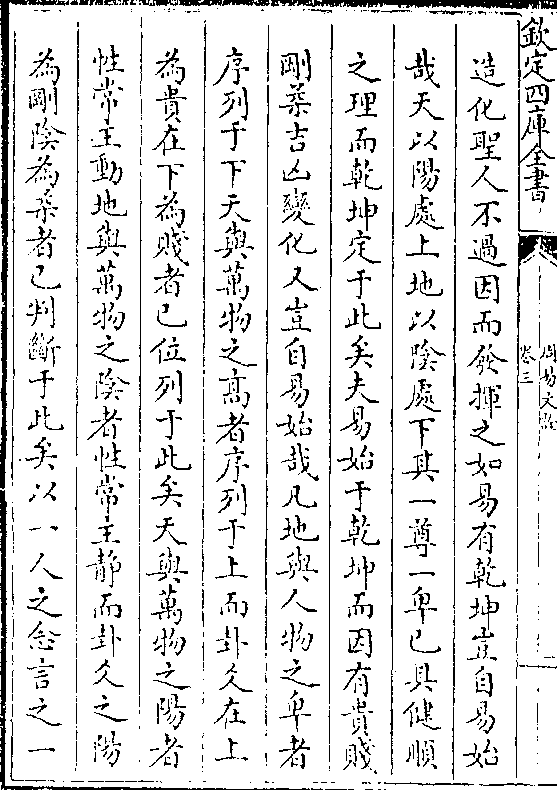 欽定四庫全書
卷三
造化聖人不過因而發揮之如易有乾坤豈自易始
哉天以陽處上地以陰處下其一尊一卑已具健順
之理而乾坤定于此矣夫易始于乾坤而因有貴賤
剛柔吉凶變化又豈自易始哉凡地與人物之卑者
序列于下天與萬物之高者序列于上而卦爻在上
為貴在下為賤者已位列于此矣天與萬物之陽者
性常主動地與萬物之陰者性常主靜而卦爻之陽
為剛陰為柔者已判斷于此矣以一人之念言之一